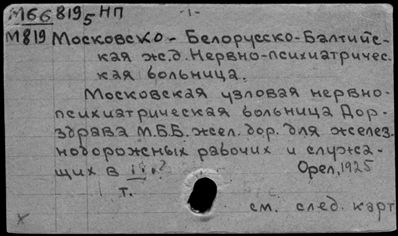 М66 8195 НП
М819 Московско - Белорусско-Балтийс-
кая ж.д. Нервно-психиатричес-
кая больница.
Московская узловая нервно-
психиатрическая больница Дор-
здрава М.Б.Б. жел. дор. для желез-
нодорожных рабочих и служа-
щих в
Орел, 1925
т.
см. след. карт